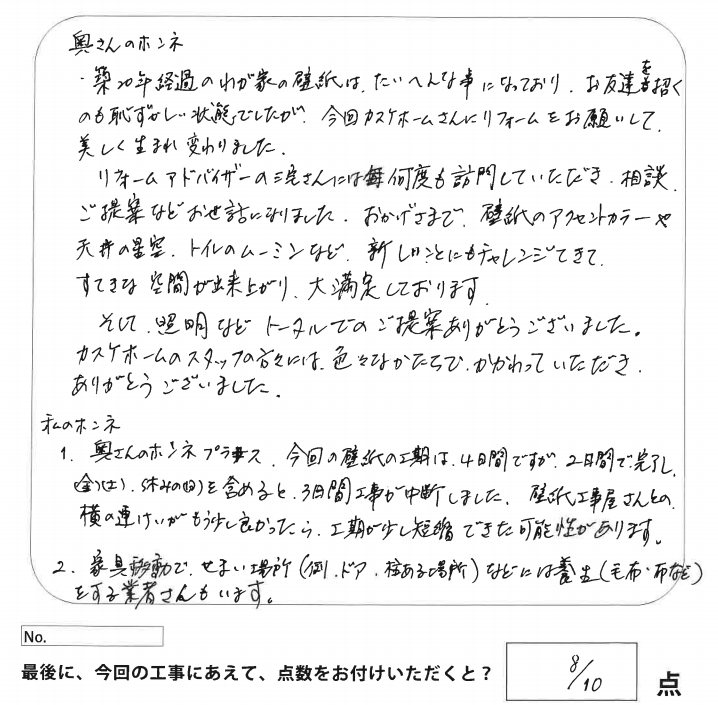 奥さんのホンネ
・築20年経過のわが家の壁紙は、たいへんな事になっており、お友達を招く
のも恥ずかしい状態でしたが、今回カスケホームさんにリフォームをお願いして、
美しく生まれ変わりました。
リフォームアドバイザーの三宅さんには毎何度も訪問していただき、相談、
ご提案などお世話になりました。おかげさまで、壁紙のアクセントカラーや
天井の星空、トイレのムーミンなど、新しいことにもチャレンジできて、
すてきな空間が出来上がり、大満足しております。
そして、照明などトータルでのご提案ありがとうございました。
カスケホームのスタッフの方々には、色々なかたちで、かかわっていただき、
ありがとうございました。
私のホンネ
1. 奥さんのホンネプラス、今回の壁紙の工期は、4日間ですが、2日間で完了し、
(金)(土)、休みの(日)を含めると、3日間工事が中断しました。壁紙工事屋さんとの、
横の連けいがもう少し良かったら、工期が少し短縮できた可能性があります。
2. 家具移動で、せまい場所(例、ドア、柱ある場所)などには養生(毛布・布など)
をする業者さんもいます。
No.
最後に、今回の工事にあえて、点数をお付けいただくと? 8/10 点